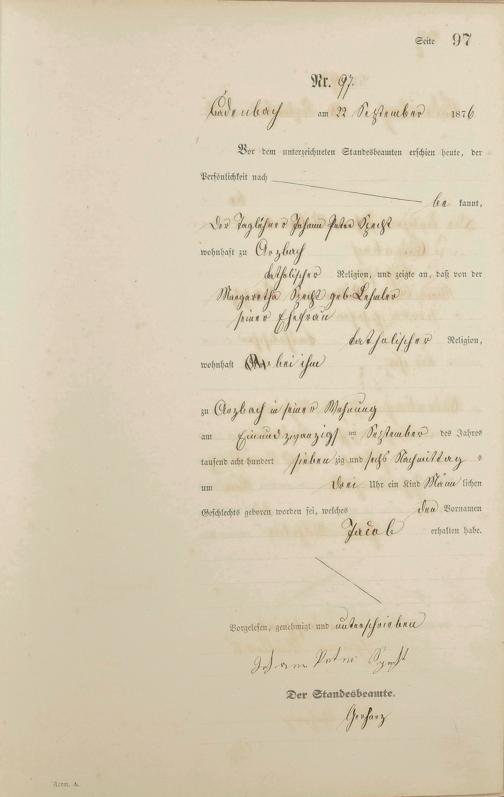 Seite 97
Nr. 97.
Cadenbach am 22 September 1876
Vor dem unterzeichneten Standesbeamten erschien heute, der
Persönlichkeit nach
be kannt,
der Taglöhner Johann Peter Specht
wohnhaft zu Arzbach
katholischer Religion, und zeigte an, daß von der
Margaretha Specht geb.
seiner Ehefrau
katholischer Religion,
wohnhaft bei ihm
zu Arzbach in seiner Wohnung
am Einundzwanzigst en September des Jahres
tausend acht hundert sieben zig und sechs Nachmittag s
um drei Uhr ein Kind Männ lichen
Geschlechts geboren worden sei, welches den Vornamen
Jacob erhalten habe.
Vorgelesen, genehmigt und unterschrieben
Johann Peter Specht
Der Standesbeamte.
Gerharz
Form. A.